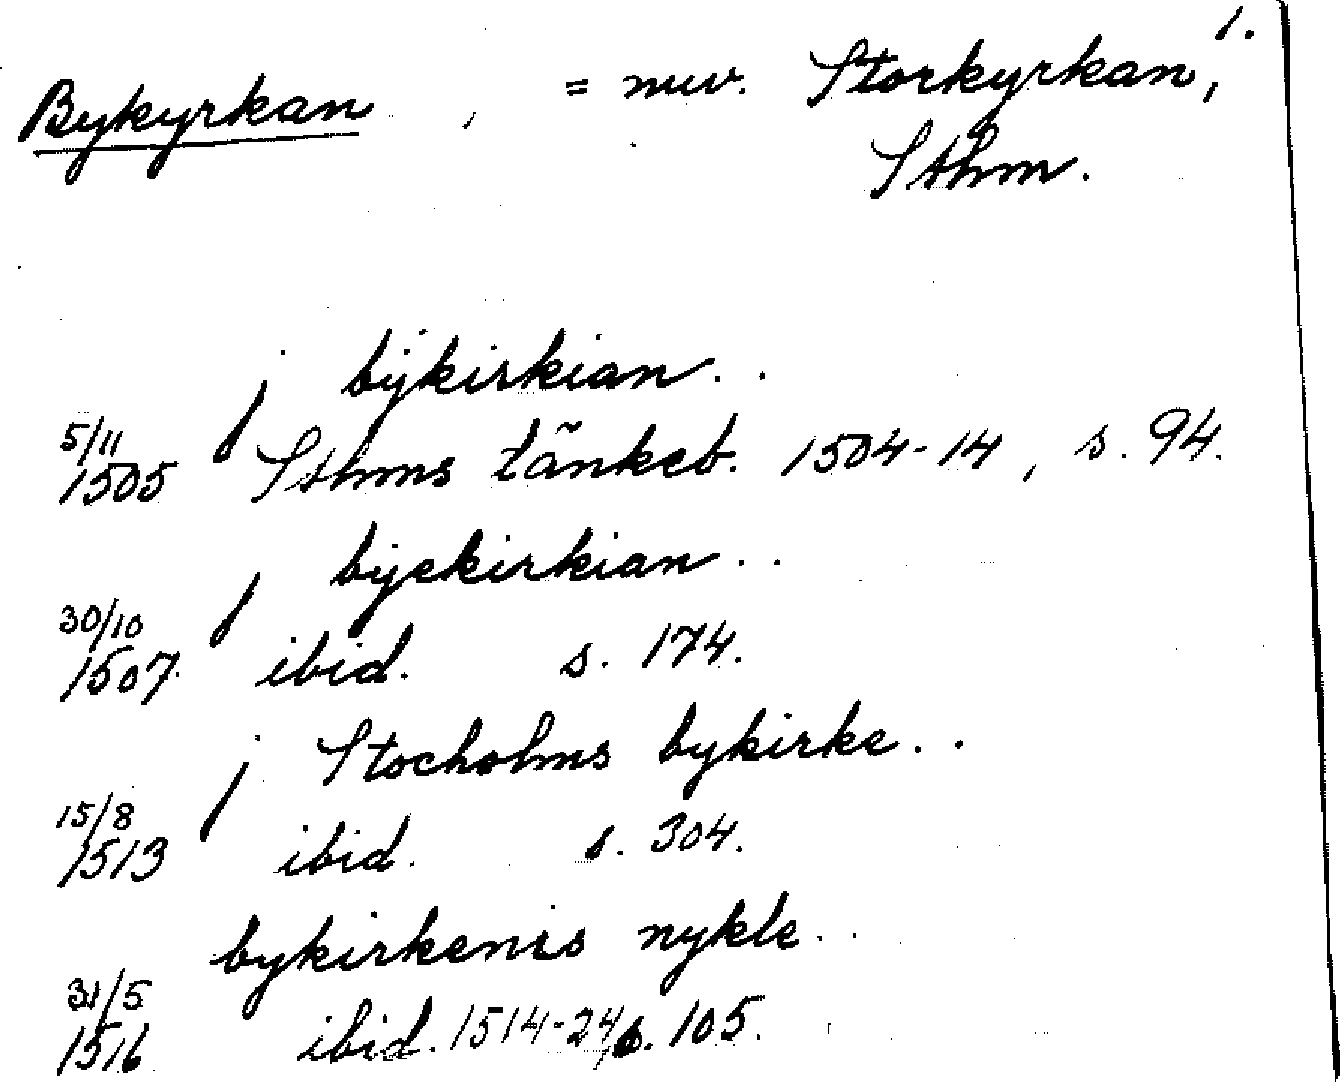 1.
Bykyrkan, = nuv. Storkyrkan,
Sthm.
j bÿkirkian..
5/11
1505 Sthms tänkeb. 1504-14, s. 94.
j bÿekirkian..
30/10
1507. ibid. s. 174.
j Stocholms bykirke..
15/8
1513 ibid. s. 304.
bykirkenis nykle..
31/5
1516 ibid. 1514-24, s. 105.